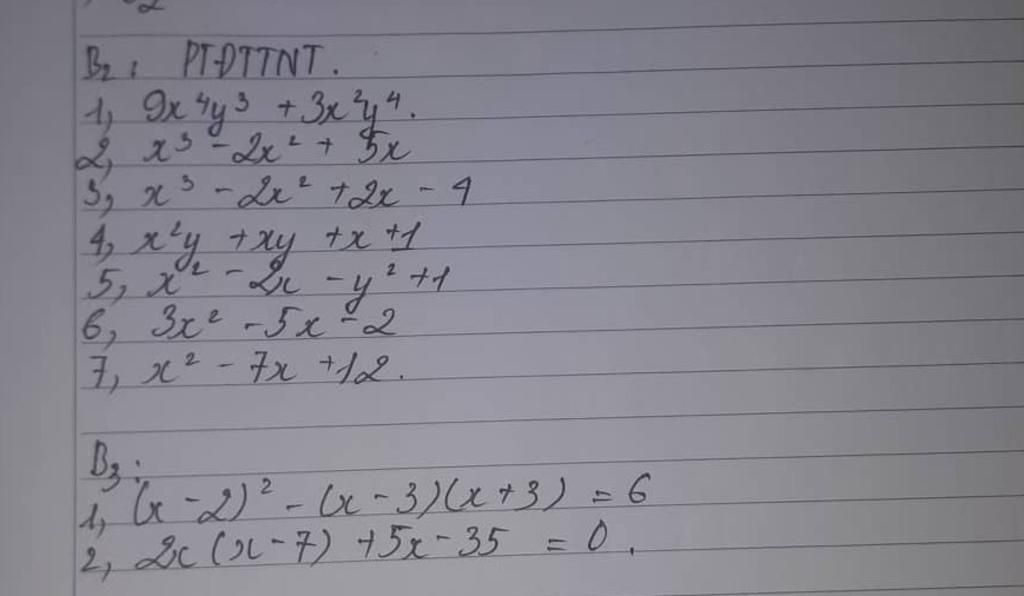 B2: PTĐTTNT.
1, 9x⁴y³ + 3x²y⁴.
2, x³ - 2x² + 5x
3, x³ - 2x² + 2x - 4
4, x²y + xy + x + 1
5, x² - 2x - y² + 1
6, 3x² - 5x - 2
7, x² - 7x + 12.
B3:
1, (x - 2)² - (x - 3)(x + 3) = 6
2, 2x (x - 7) + 5x - 35 = 0.